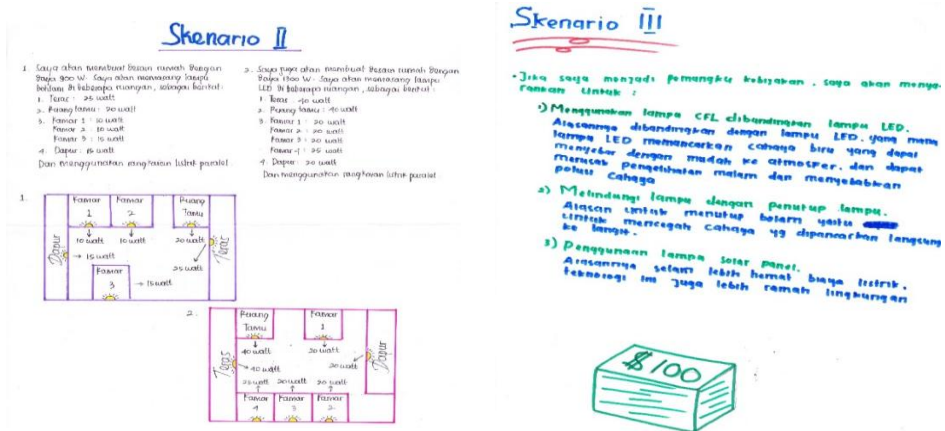 Skenario II
1. Saya akan membuat desain rumah dengan
daya 900 W. Saya akan memasang lampu
bohlam di beberapa ruangan, sebagai berikut:
1. Teras : 25 watt
2. Ruang tamu : 20 watt
3. Kamar 1 : 10 watt
Kamar 2 : 10 watt
Kamar 3 : 15 watt
4. Dapur : 15 watt
Dan menggunakan rangkaian listrik paralel.
2. Saya juga akan membuat desain rumah dengan
daya 1300 W. Saya akan memasang lampu
LED di beberapa ruangan, sebagai berikut:
1. Teras : 40 watt
2. Ruang tamu : 40 watt
3. Kamar 1 : 20 watt
Kamar 2 : 20 watt
Kamar 3 : 20 watt
Kamar 4 : 25 watt
4. Dapur : 20 watt
Dan menggunakan rangkaian listrik paralel
1.
Kamar 1
Kamar 2
Ruang Tamu
10 watt
10 watt
20 watt
Dapur
15 watt
Teras
25 watt
Kamar 3
15 watt
2.
Ruang Tamu
Kamar 1
40 watt
20 watt
Teras
40 watt
20 watt
Dapur
25 watt
20 watt
20 watt
Kamar 4
Kamar 3
Kamar 2
Skenario III
• Jika saya menjadi pemangku kebijakan, saya akan menya-
rankan untuk :
1) Menggunakan lampu CFL dibandingkan lampu LED.
Alasannya dibandingkan dengan lampu LED. yang mana
lampu LED memancarkan cahaya biru yang dapat
menyebar dengan mudah ke atmosfer. dan dapat
merusak penglihatan malam dan menyebabkan
polusi cahaya
2) Melindungi lampu dengan penutup lampu.
Alasan untuk menutup bolam yaitu
untuk mencegah cahaya yg dipancarkan langsung
ke langit.
3) Penggunaan lampu solar panel.
Alasannya selain lebih hemat biaya listrik.
teknologi ini juga lebih ramah lingkungan
$100